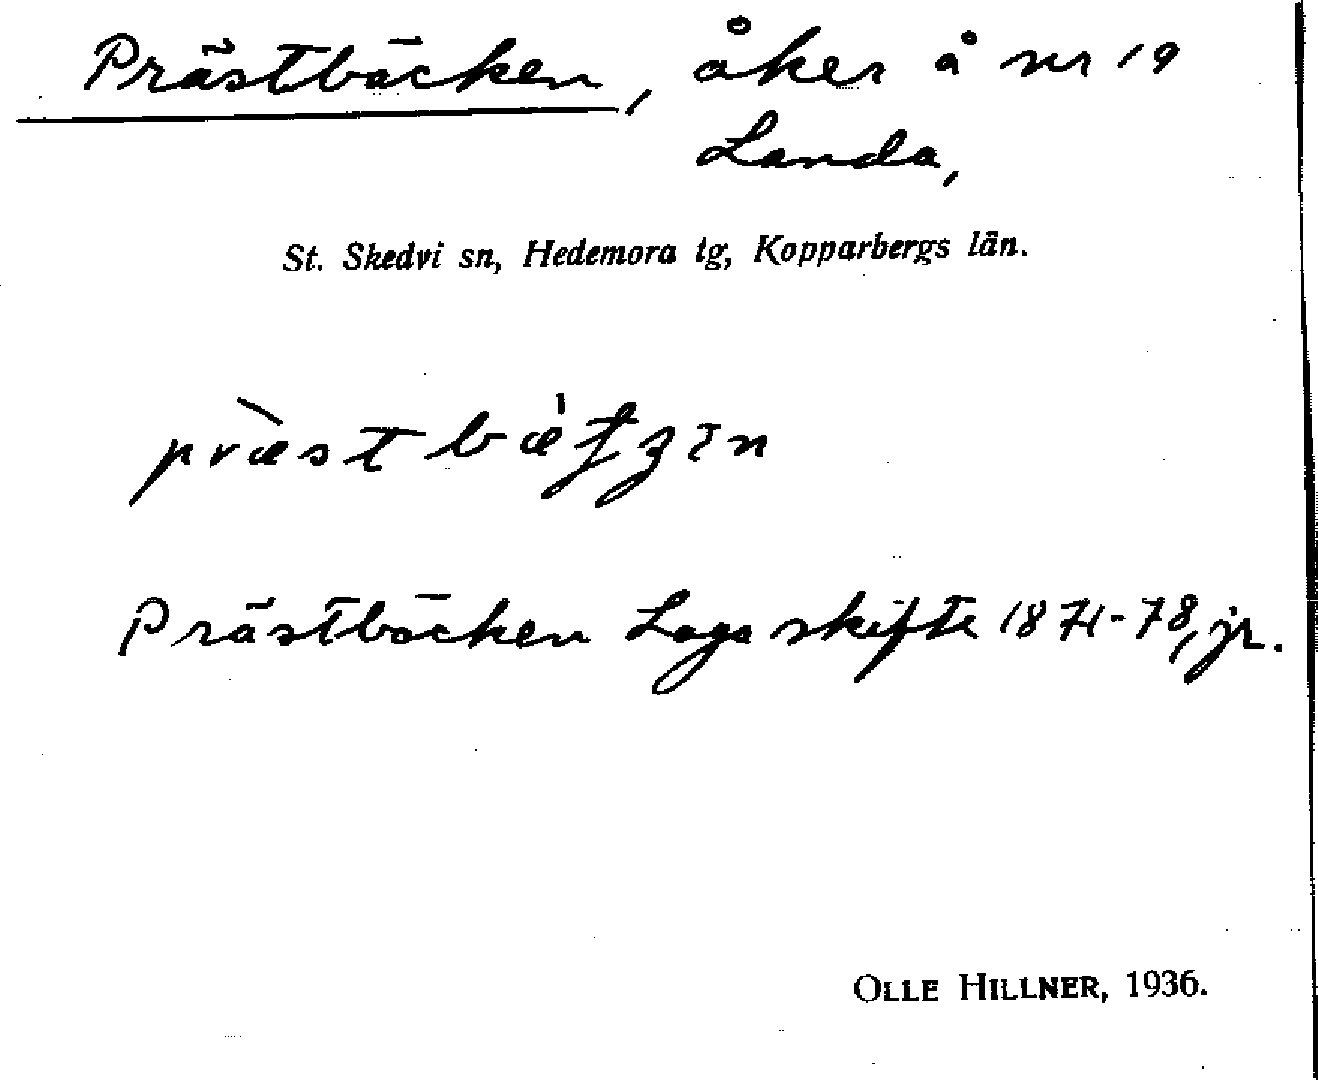 Prästbäcken, åker å nr 19
Landa,
St. Skedvi sn, Hedemora tg, Kopparbergs län.
Prästbäcken Laga skifte 1871-78, jr.
OLLE HILLNER, 1936.